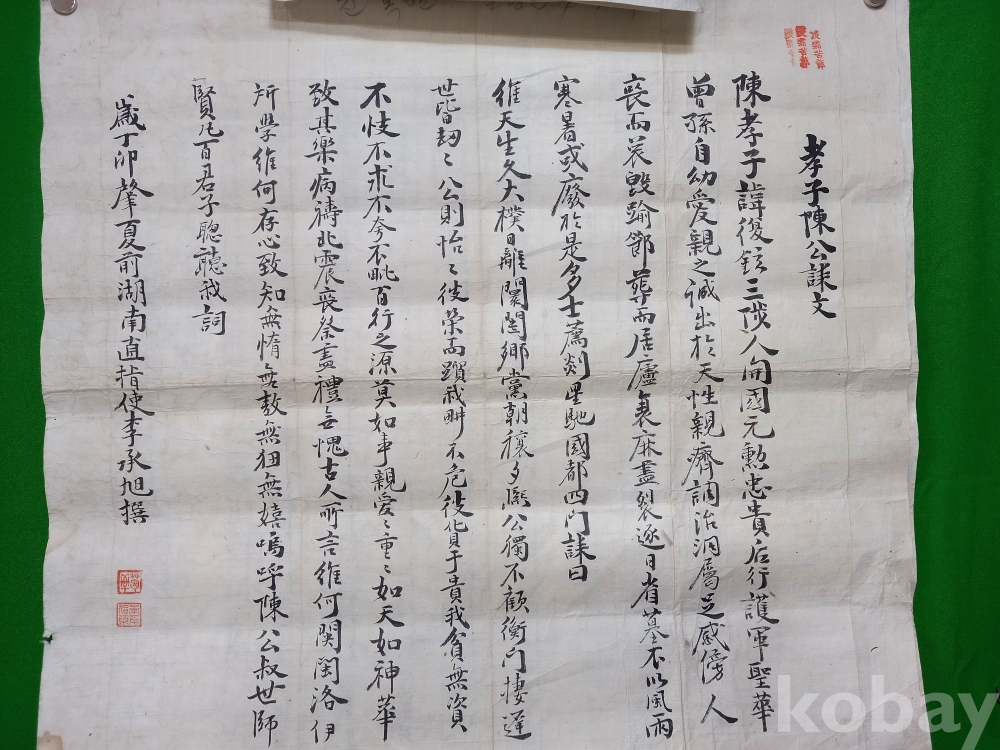 孝子陳公誄文
陳孝子諱復 三陟人開國元勳忠貴后行護軍聖華
曾孫自幼愛親之誠出於天性親癠調治洞屬足感傍人
喪而哀毀踰節葬而居廬衰麻盡裂逐日省墓不以風雨
寒暑或廢於是多士薦剡星馳國都四門誄曰
維天生久大樸日離闤闠鄉黨朝穰夕熙公獨不顧衡門棲遲
世皆劫〻公則怡〻彼榮而躓我畊不危彼貨于貴我貧無資
不忮不求不夸不毗百行之源莫如事親愛〻重〻如天如神華
致其樂病禱北宸喪祭盡禮無愧古人所言維何関閩洛伊
所學維何存心致知無惰無敖無狃無嬉嗚呼陳公叔世師
賢凡百君子聰聽我詞
歲丁卯肇夏前湖南直指使李承旭撰
kobay